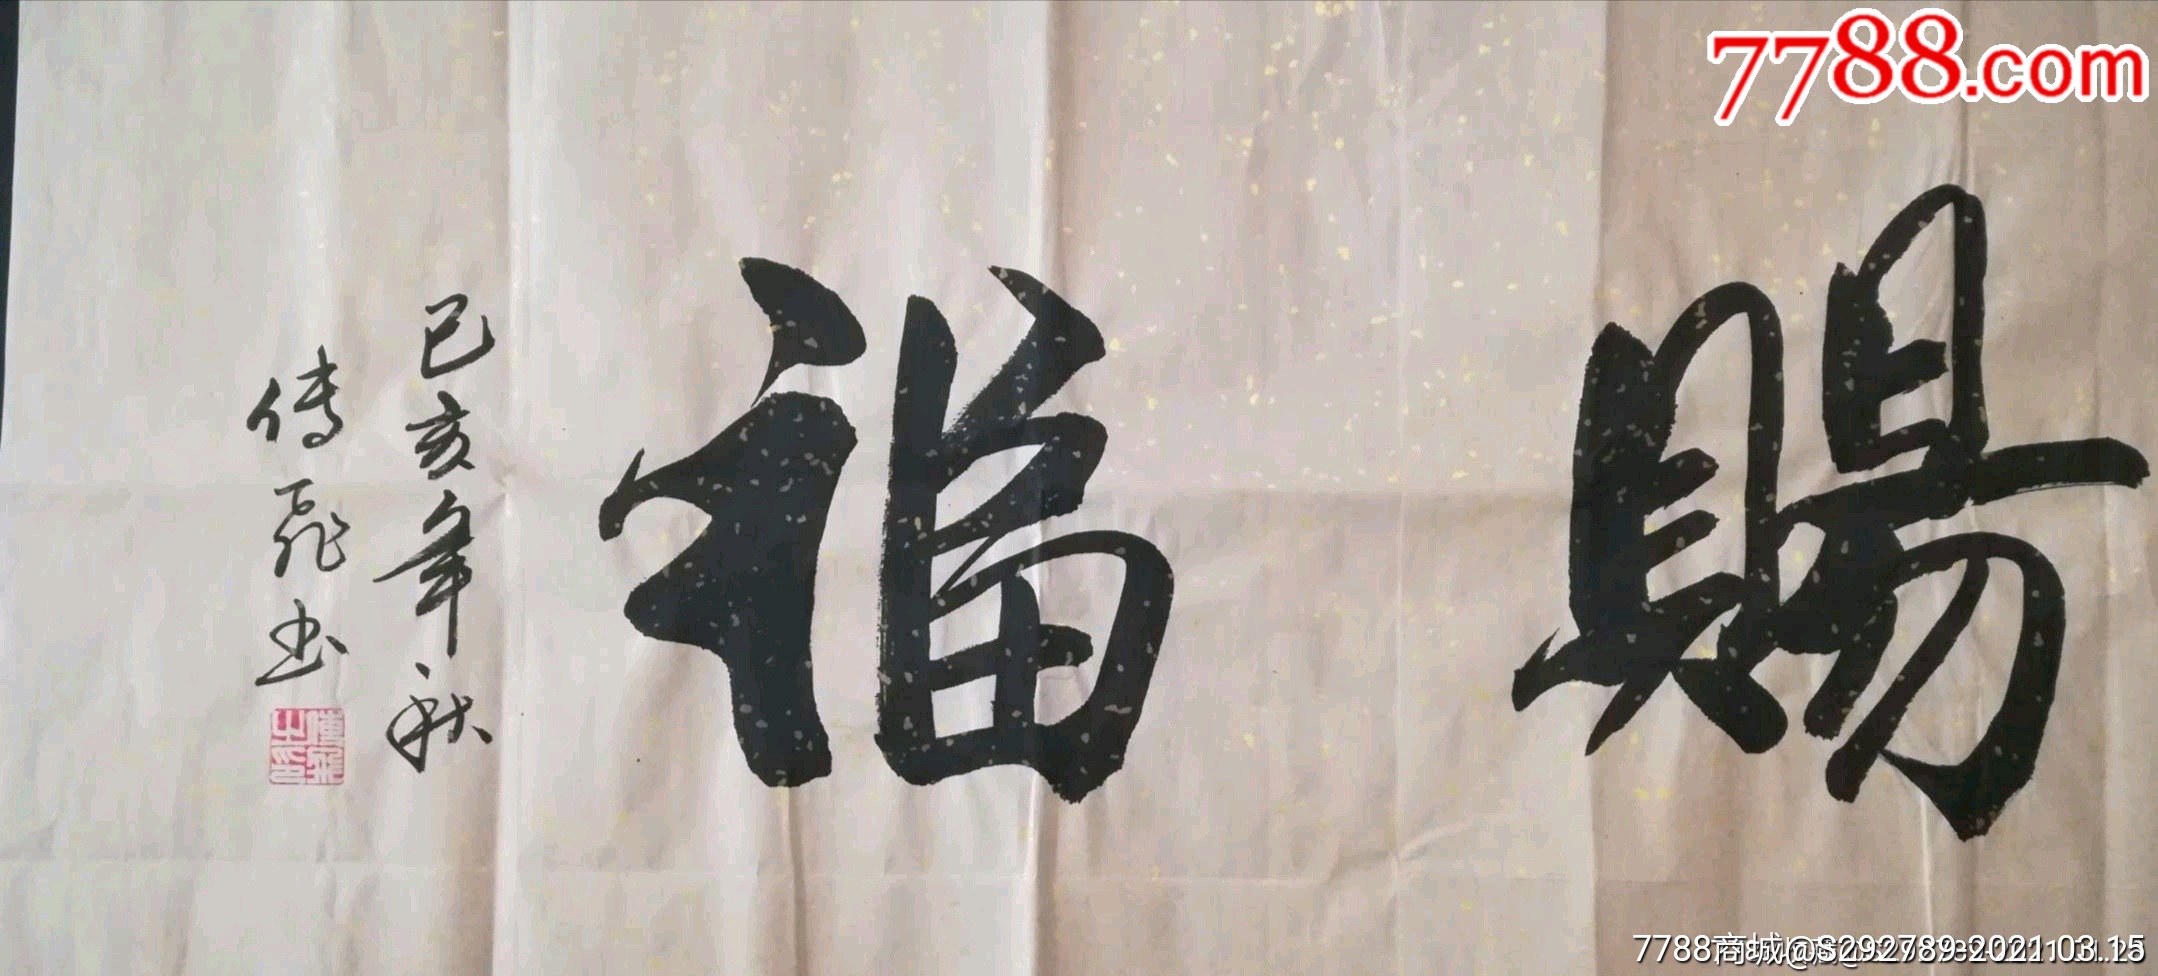 7788.com
賜福
己亥年秋
傳飛书
傳飛之印
7788商城@S292789-2021.03.15